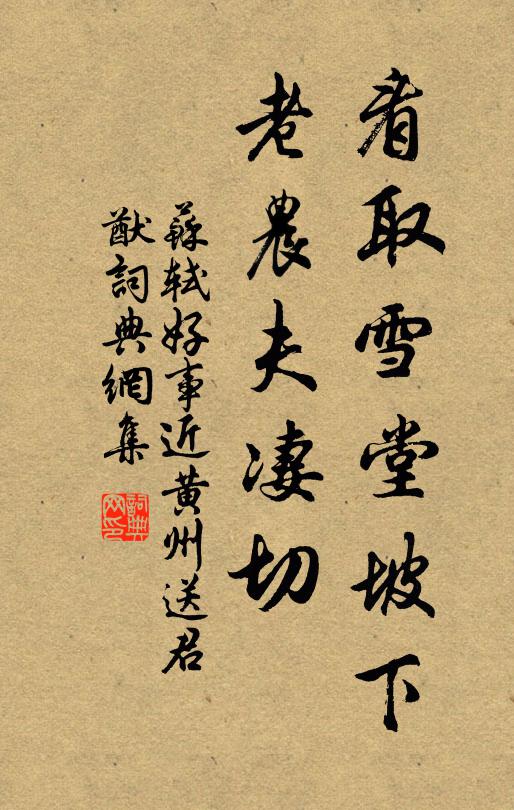 看取雪堂坡下
老農夫凄切
蘇軾好事近黃州送君
猷詞典網集
詞典網印